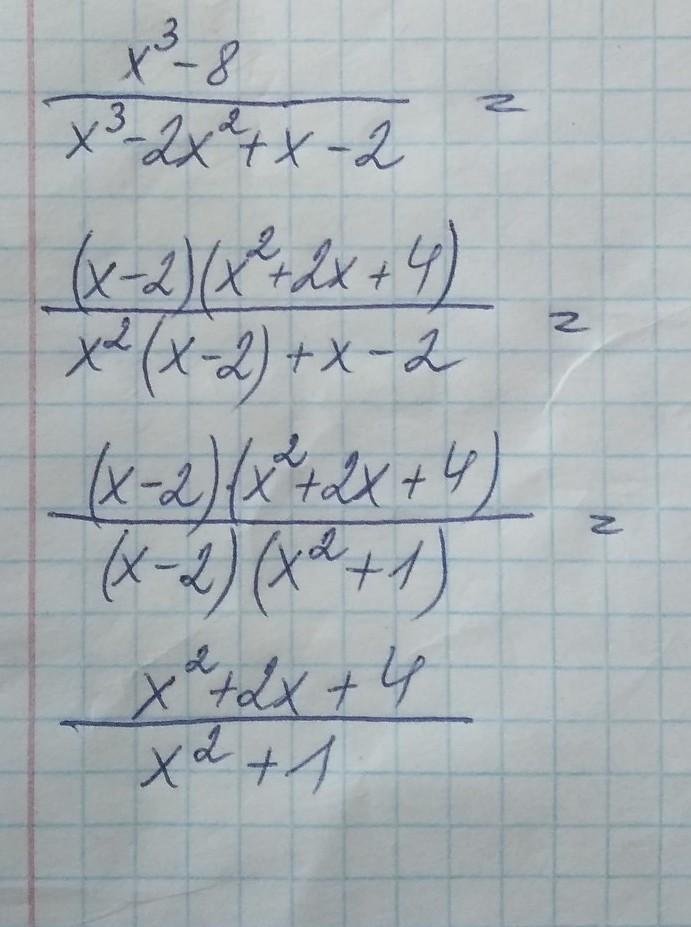 x³-8
x³-2x²+x-2 =
(x-2)(x²+2x+4)
x²(x-2)+x-2 =
(x-2)(x²+2x+4)
(x-2)(x²+1) =
x²+2x+4
x²+1